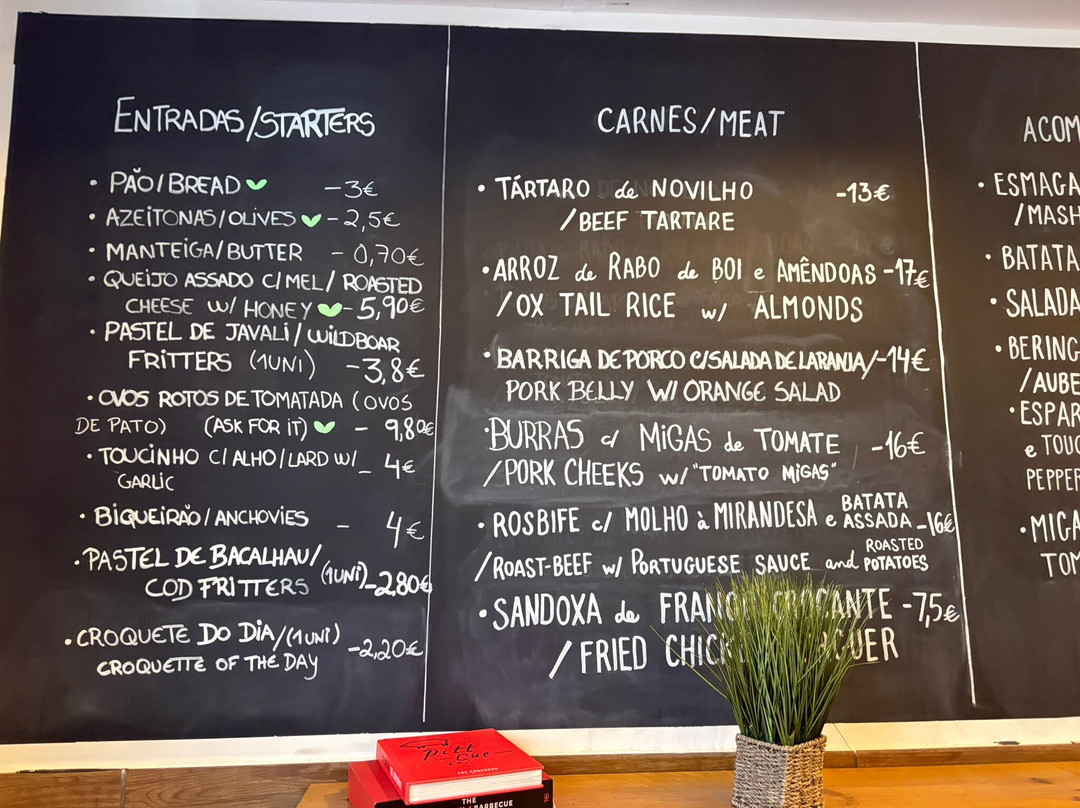 ENTRADAS/STARTERS
• PÃO/BREAD -3€
• AZEITONAS/OLIVES -2,5€
• MANTEIGA/BUTTER - 0,70€
• QUEIJO ASSADO C/MEL/ ROASTED
CHEESE W/ HONEY - 5,90€
• PASTEL DE JAVALI/WILDBOAR
FRITTERS (1UNI) -3,8€
• OVOS ROTOS DE TOMATADA (OVOS
DE PATO) (ASK FOR IT) - 9,80€
• TOUCINHO C/ALHO/LARD W/ - 4€
GARLIC
• BIQUEIRÃO/ANCHOVIES - 4€
• PASTEL DE BACALHAU/
COD FRITTERS (1UNI) -2,80€
• CROQUETE DO DIA/(1UNI) -2,20€
CROQUETTE OF THE DAY
CARNES/MEAT
• TÁRTARO de NOVILHO -13€
/BEEF TARTARE
• ARROZ de RABO de BOI e AMÊNDOAS -17€
/OX TAIL RICE w/ ALMONDS
• BARRIGA DE PORCO C/SALADA DE LARANJA/-14€
PORK BELLY W/ ORANGE SALAD
• BURRAS c/ MIGAS de TOMATE -16€
/PORK CHEEKS w/ "TOMATO MIGAS"
• ROSBIFE c/ MOLHO à MIRANDESA e BATATA ASSADA -16€
/ROAST-BEEF w/ PORTUGUESE SAUCE and ROASTED POTATOES
• SANDOXA de -7,5€
/FRIED
ACOM
• ESMAGA
/MASH
• BATATA
• SALADA
• BERING
/AUBE
• ESPAR
e TOUC
PEPPER
• MIGA
TOM
Pitt
Cue
THE COOKBOOK
THE
BARBECUE